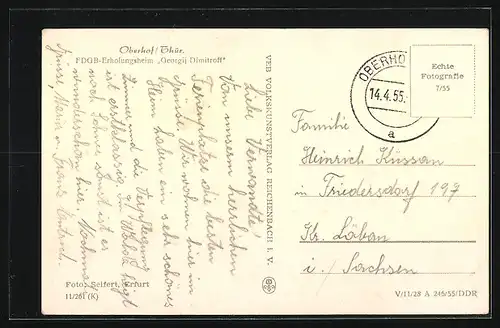 Oberhof/Thür.
FDGB-Erholungsheim „Georgij Dimitroff"
Liebe Verwandte!
Von unserm herrlichen
Ferienplatze die besten
Grüsse. Wir wohnen hier im
Heim haben ein sehr schönes
Zimmer und die Verpflegung
ist erstklassig. Im Walde liegt
noch Schnee sonst ist es
wunderschön hier. Nochmals
Grüsse, Maria u. Frank
Foto: Seifert, Erfurt
11/261 (K)
VEB VOLKSKUNSTVERLAG REICHENBACH I. V.
OBERHO
14.4.55.
a
Echte
Fotografie
7/55
Familie
Heinrich Küssan
in Friedersdorf 197
Kr. Löbau
i./Sachsen
V/11/28 A 246/55/DDR